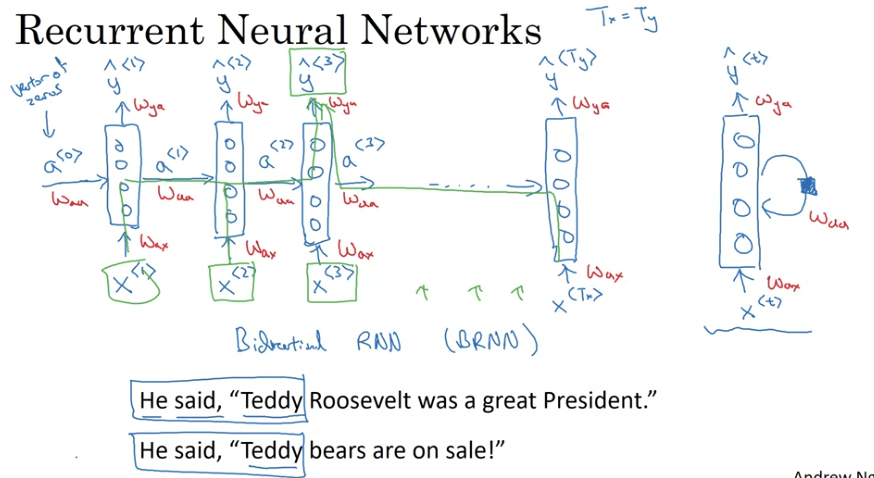 Recurrent Neural Networks
Tx = Ty
vector of zeros
ŷ<1> ŷ<2> ŷ<3> ŷ<Ty> ŷ<t>
Wya Wya Wya Wya Wya
a<0> a<1> a<2> a<3>
Waa Waa Waa Waa Waa
Wax Wax Wax Wax Wax
x<1> x<2> x<3> x<Tx> x<t>
Bidirectional RNN (BRNN)
He said, “Teddy Roosevelt was a great President.”
He said, “Teddy bears are on sale!”
Andrew